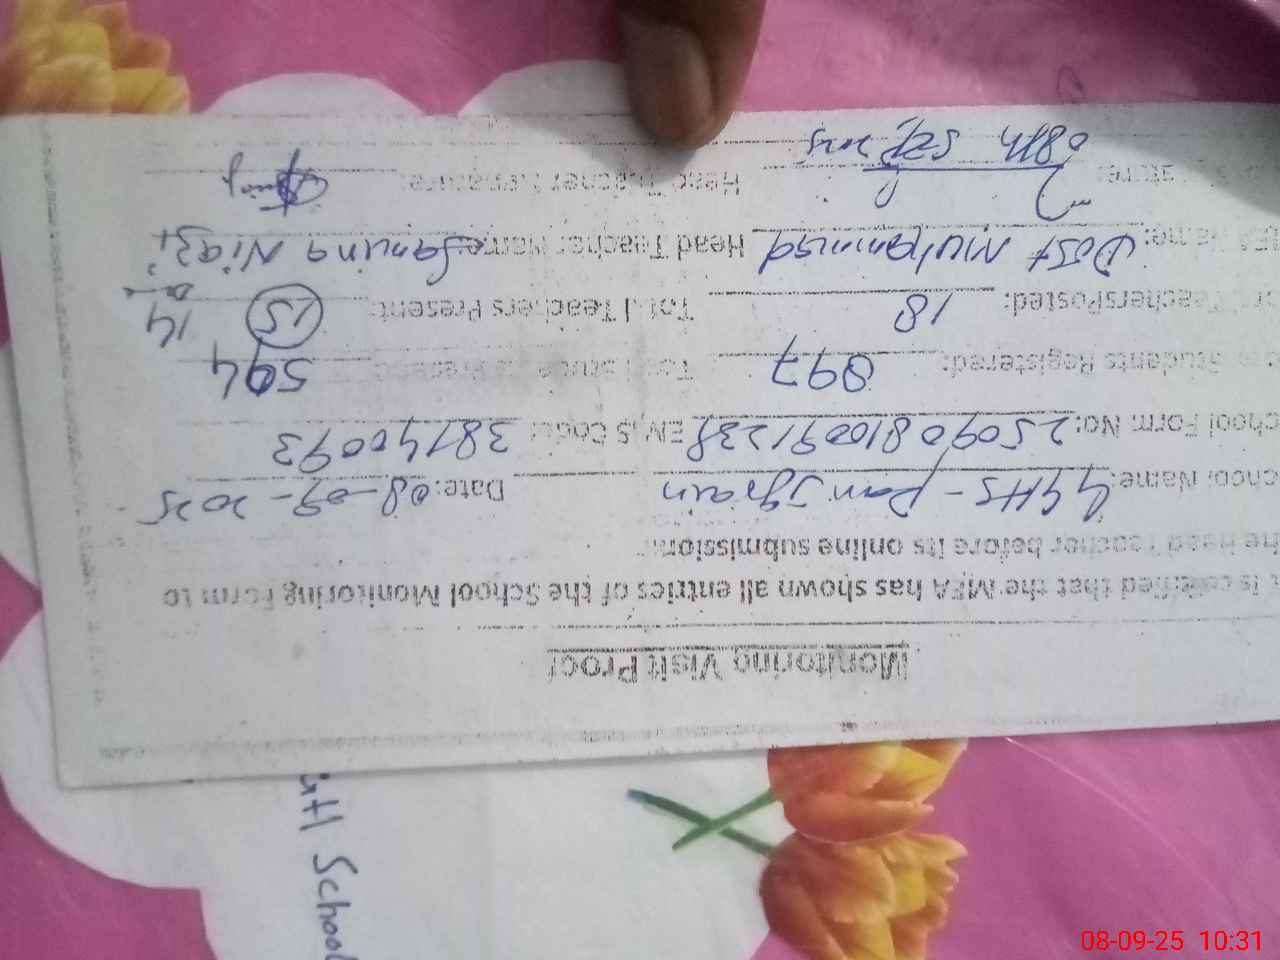 Monitoring Visit Proof
It is certified that the MEA has shown all entries of the School Monitoring Form to
the Head Teacher before its online submission.
School Name: GGHS- Date: 08-09-2025
School Form No: EMIS Code: 38140093
Students Registered: 897 Total Students Present: 504
Teachers Posted: 18 Total Teachers Present: 15 14
MEA Name: Dost Muhammad Head Teacher Name: Samina Niazi
Head Teacher Signature:
School
08-09-25 10:31